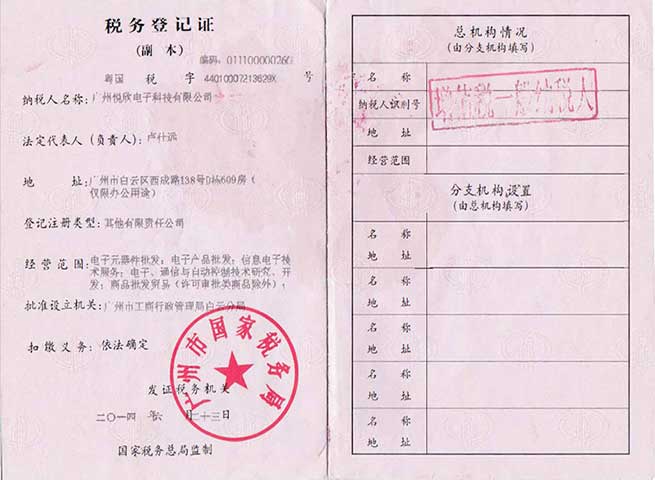 税务登记证
(副 本)
编码: 011100000260
粤国 税 字 44010007213629X 号
纳税人名称: 广州悦欣电子科技有限公司
法定代表人 (负责人): 卢仕远
地 址: 广州市白云区西成路138号D栋609房 (
仅限办公用途)
登记注册类型: 其他有限责任公司
经营范围: 电子元器件批发; 电子产品批发; 信息电子技
术服务; 电子、通信与自动控制技术研究、开
发; 商品批发贸易 (许可审批类商品除外);
批准设立机关: 广州市工商行政管理局白云分局
扣缴义务: 依法确定
广州市国家税务局
发证税务机关
二〇一四 年 六 月二十三日
国家税务总局监制
总机构情况
(由分支机构填写)
名 称
纳税人识别号
地 址
经营范围
增值税一般纳税人
分支机构设置
(由总机构填写)
名 称
地 址
名 称
地 址
名 称
地 址
名 称
地 址
名 称
地 址